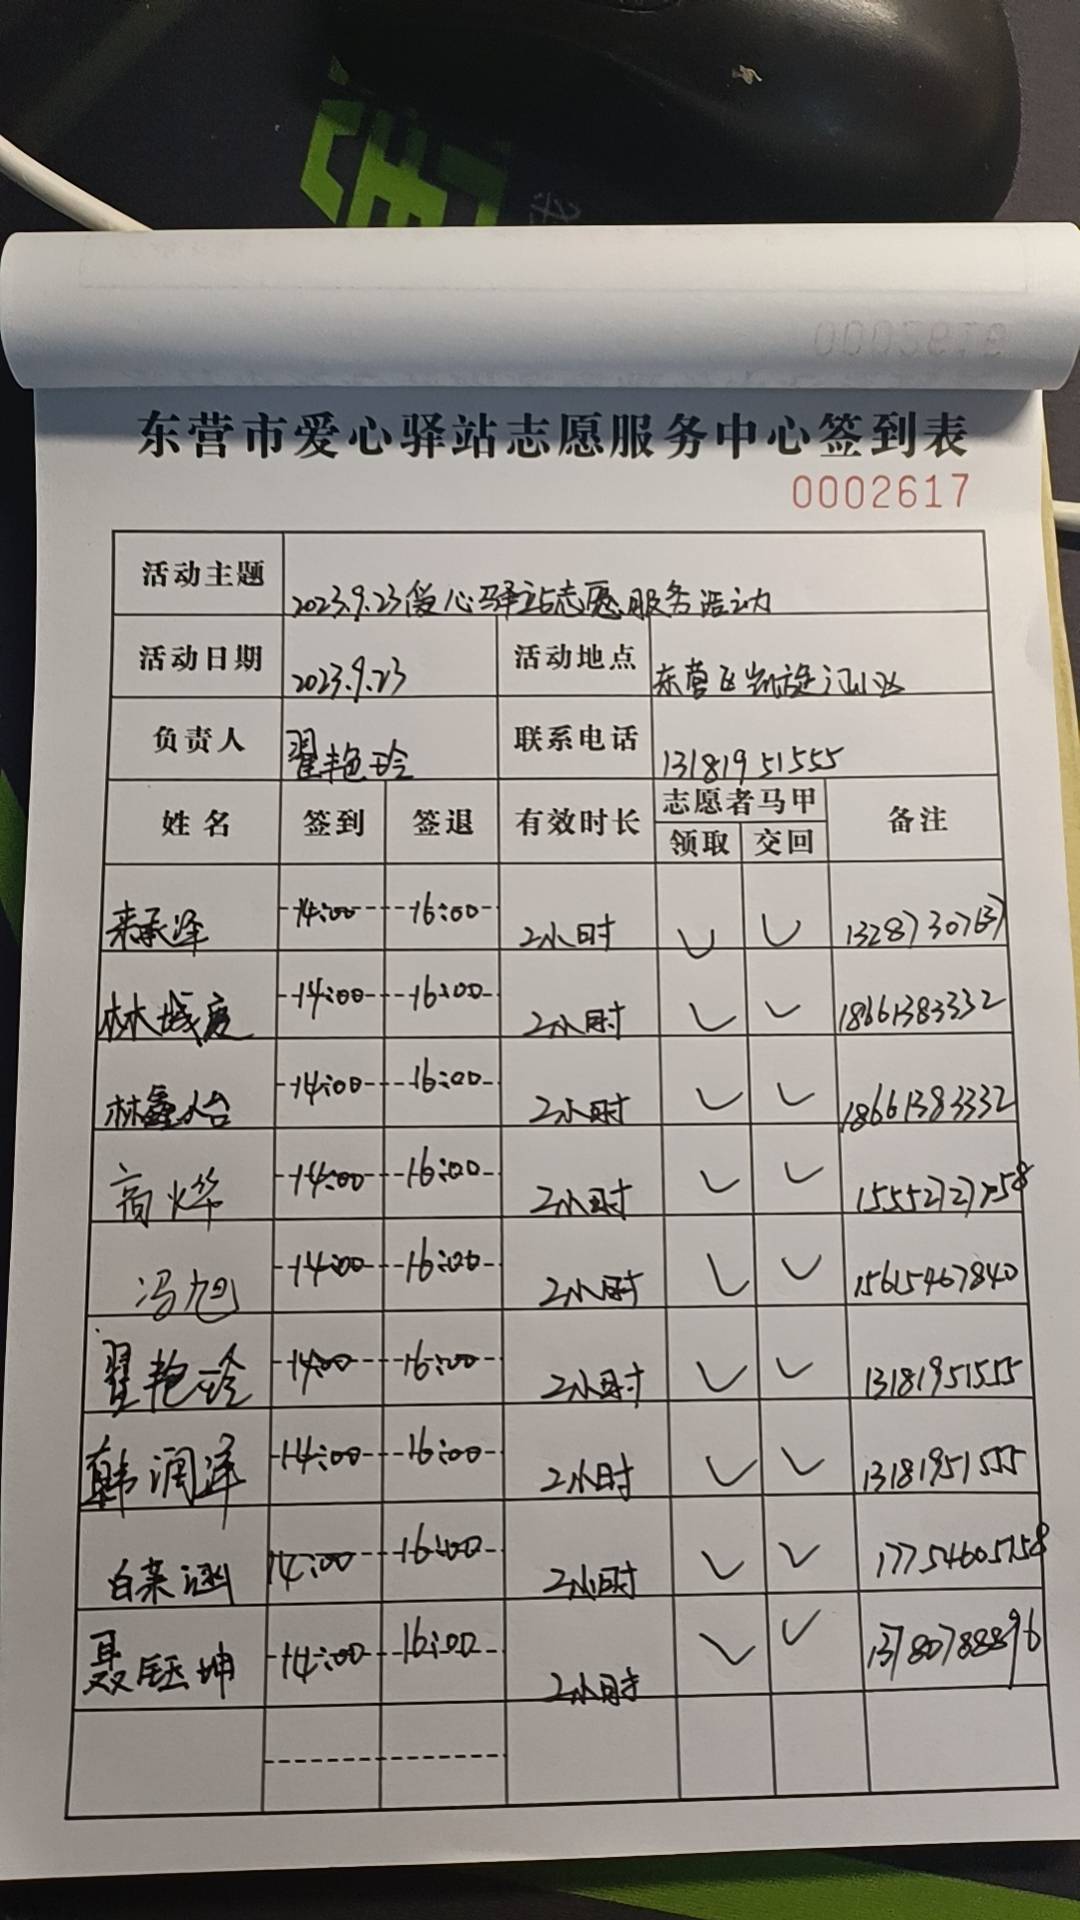 东营市爱心驿站志愿服务中心签到表
0002617
活动主题 2023.9.23爱心驿站志愿服务活动
活动日期 2023.9.23 活动地点 东营区凯旋
负责人 翟艳玲 联系电话 13181951555
姓名 签到 签退 有效时长 志愿者马甲 备注
领取 交回
来承泽 14:00 16:00 2小时
林城庭 14:00 16:00 2小时 18661383332
林鑫怡 14:00 16:00 2小时 18661383332
高烨 14:00 16:00 2小时 15552727758
冯旭 14:00 16:00 2小时 15615467840
翟艳玲 14:00 16:00 2小时 13181951555
韩润泽 14:00 16:00 2小时 13181951555
白莱涵 14:00 16:00 2小时 17754605758
聂钰坤 14:00 16:00 2小时 13780788896